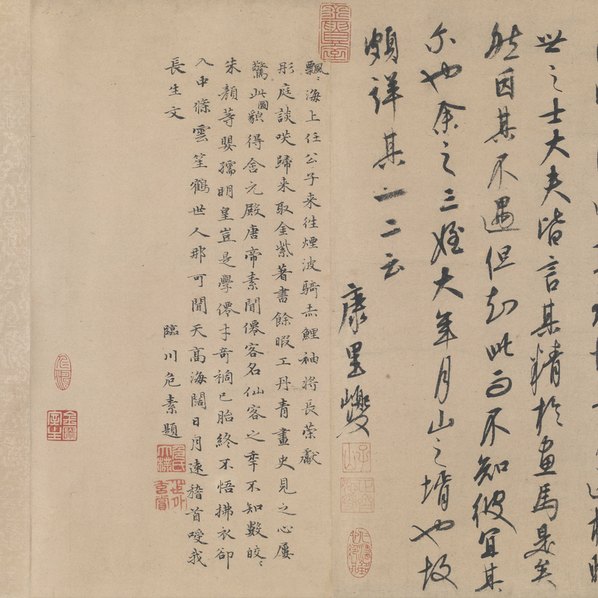 世之士大夫皆言其精於畫馬是矣
然因其不遇但知此而不知彼宜其
尔也余之三姪大年月山之壻也故
頗詳其一二云
康里巎
飄〻海上任公子来往煙波騎赤鯉袖将長策獻
彤庭談咲歸来取金紫著書餘暇工丹青畫史見之心屢
驚此圖貌得含元殿唐帝素聞僊客名仙客之年不知數皎〻
朱顔等嬰孺明皇豈是學僊才奇禍已胎終不悟拂衣卻
入中條雲笙鶴世人那可聞天高海闊日月速稽首我
長生文
臨川危素題